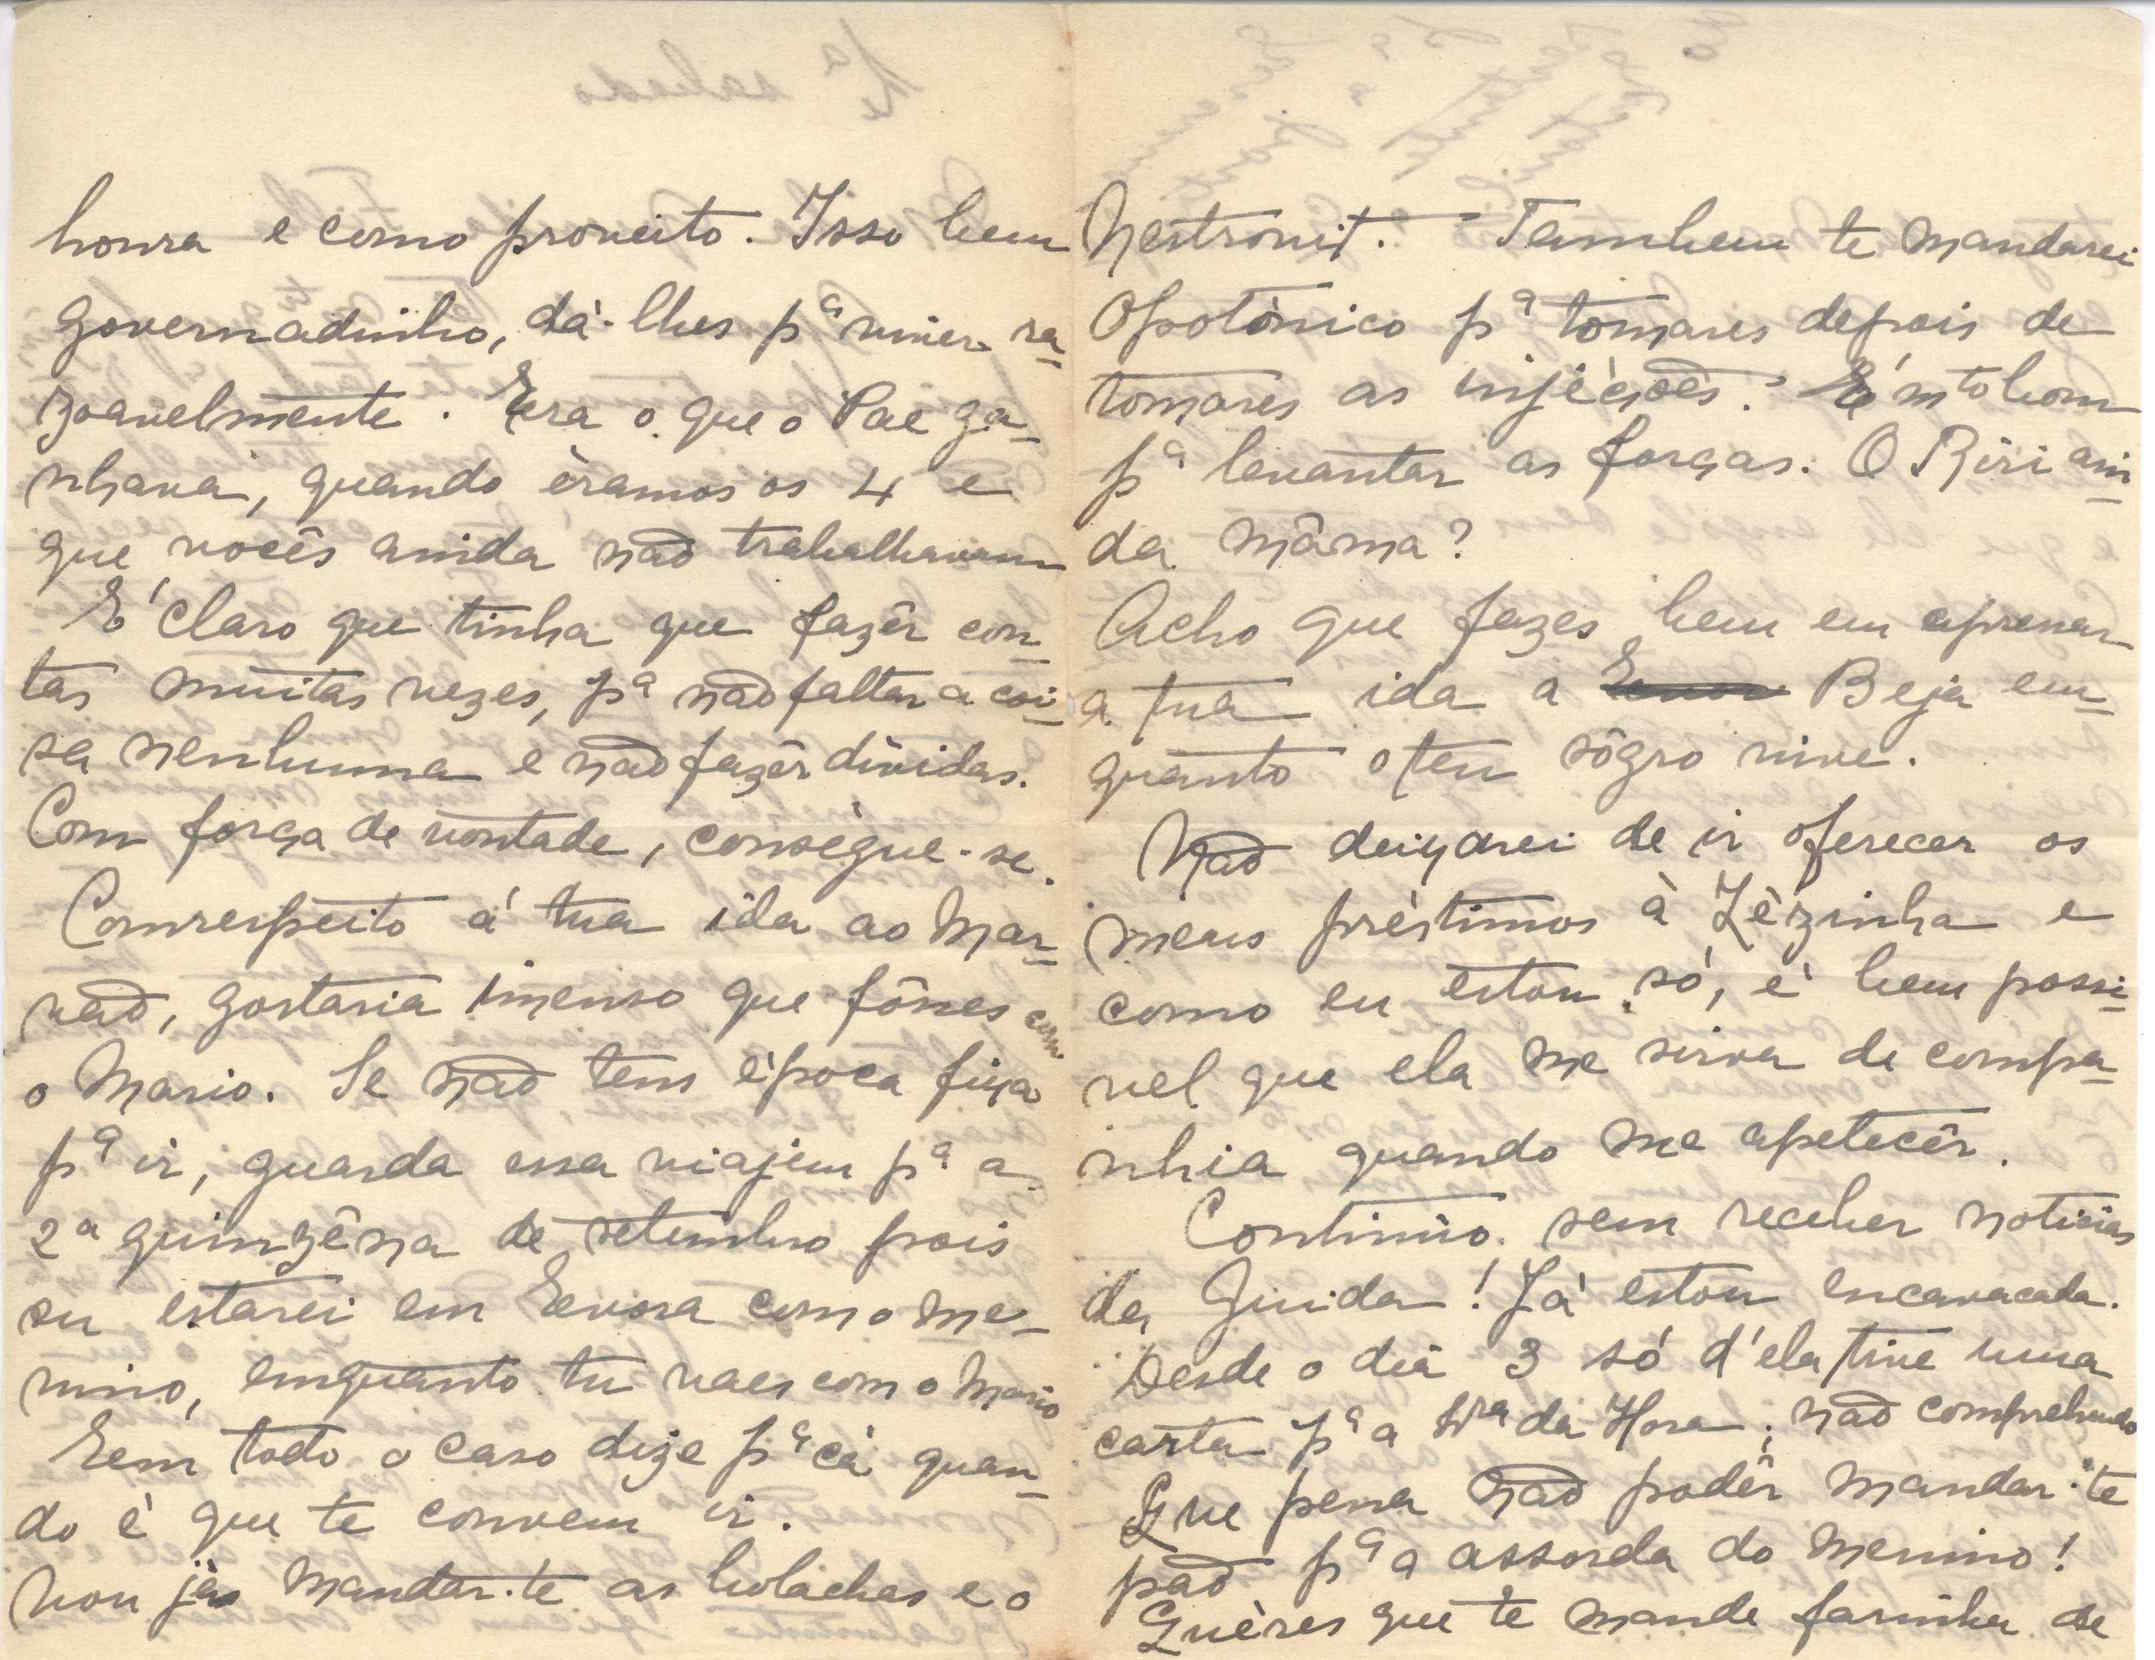 honra e como proveito. Isso bem
governadinho, dá-lhes pª viver ra-
zoavelmente. Era o que o Pae ga-
nhava, quando èramos os 4 e
que vocês ainda não trabalhavam
E' claro que tinha que fazêr con-
tas muitas vezes, pª não faltar a coi-
sa nenhuma e não fazêr dividas.
Com força de vontade, consègue-se.
Com respeito á tua ida ao Mar-
vão, gostaria imenso que fôsses com
o Mario. Se não tens època fixa
pª ir, guarda essa viajem pª a
2ª quinzêna de setembro pois
eu estarei em Evora com o me-
nino, emquanto tu vaes com o Mario
Em todo o caso dize pª cá quan-
do è que te convem ir.
Vou já mandar-te as bolachas e o
Nestrovit. Tambem te mandarei
Opotònico pª tomares depois de
tomares as injèções. E' mto bom
pª levantar as forças. O Riri ain-
da mâma?
Acho que fazes bem em aprovar
a tua ida a Beja em-
quanto o teu sôgro vive.
Não deixarei de ir oferecer os
meus prèstimos à Zèzinha e
como eu estou só, è bem possi-
vel que ela me sirva de compa-
nhia quando me apetecêr.
Continúo sem receber noticias
da Guida! Já estou encavacada.
Desde o dia 3 só d'ela tive uma
carta pª a Srª da Hora; não comprehendo
Que pena não podêr mandar-te
pão pª a assorda do menino!
Quères que te mande farinha de